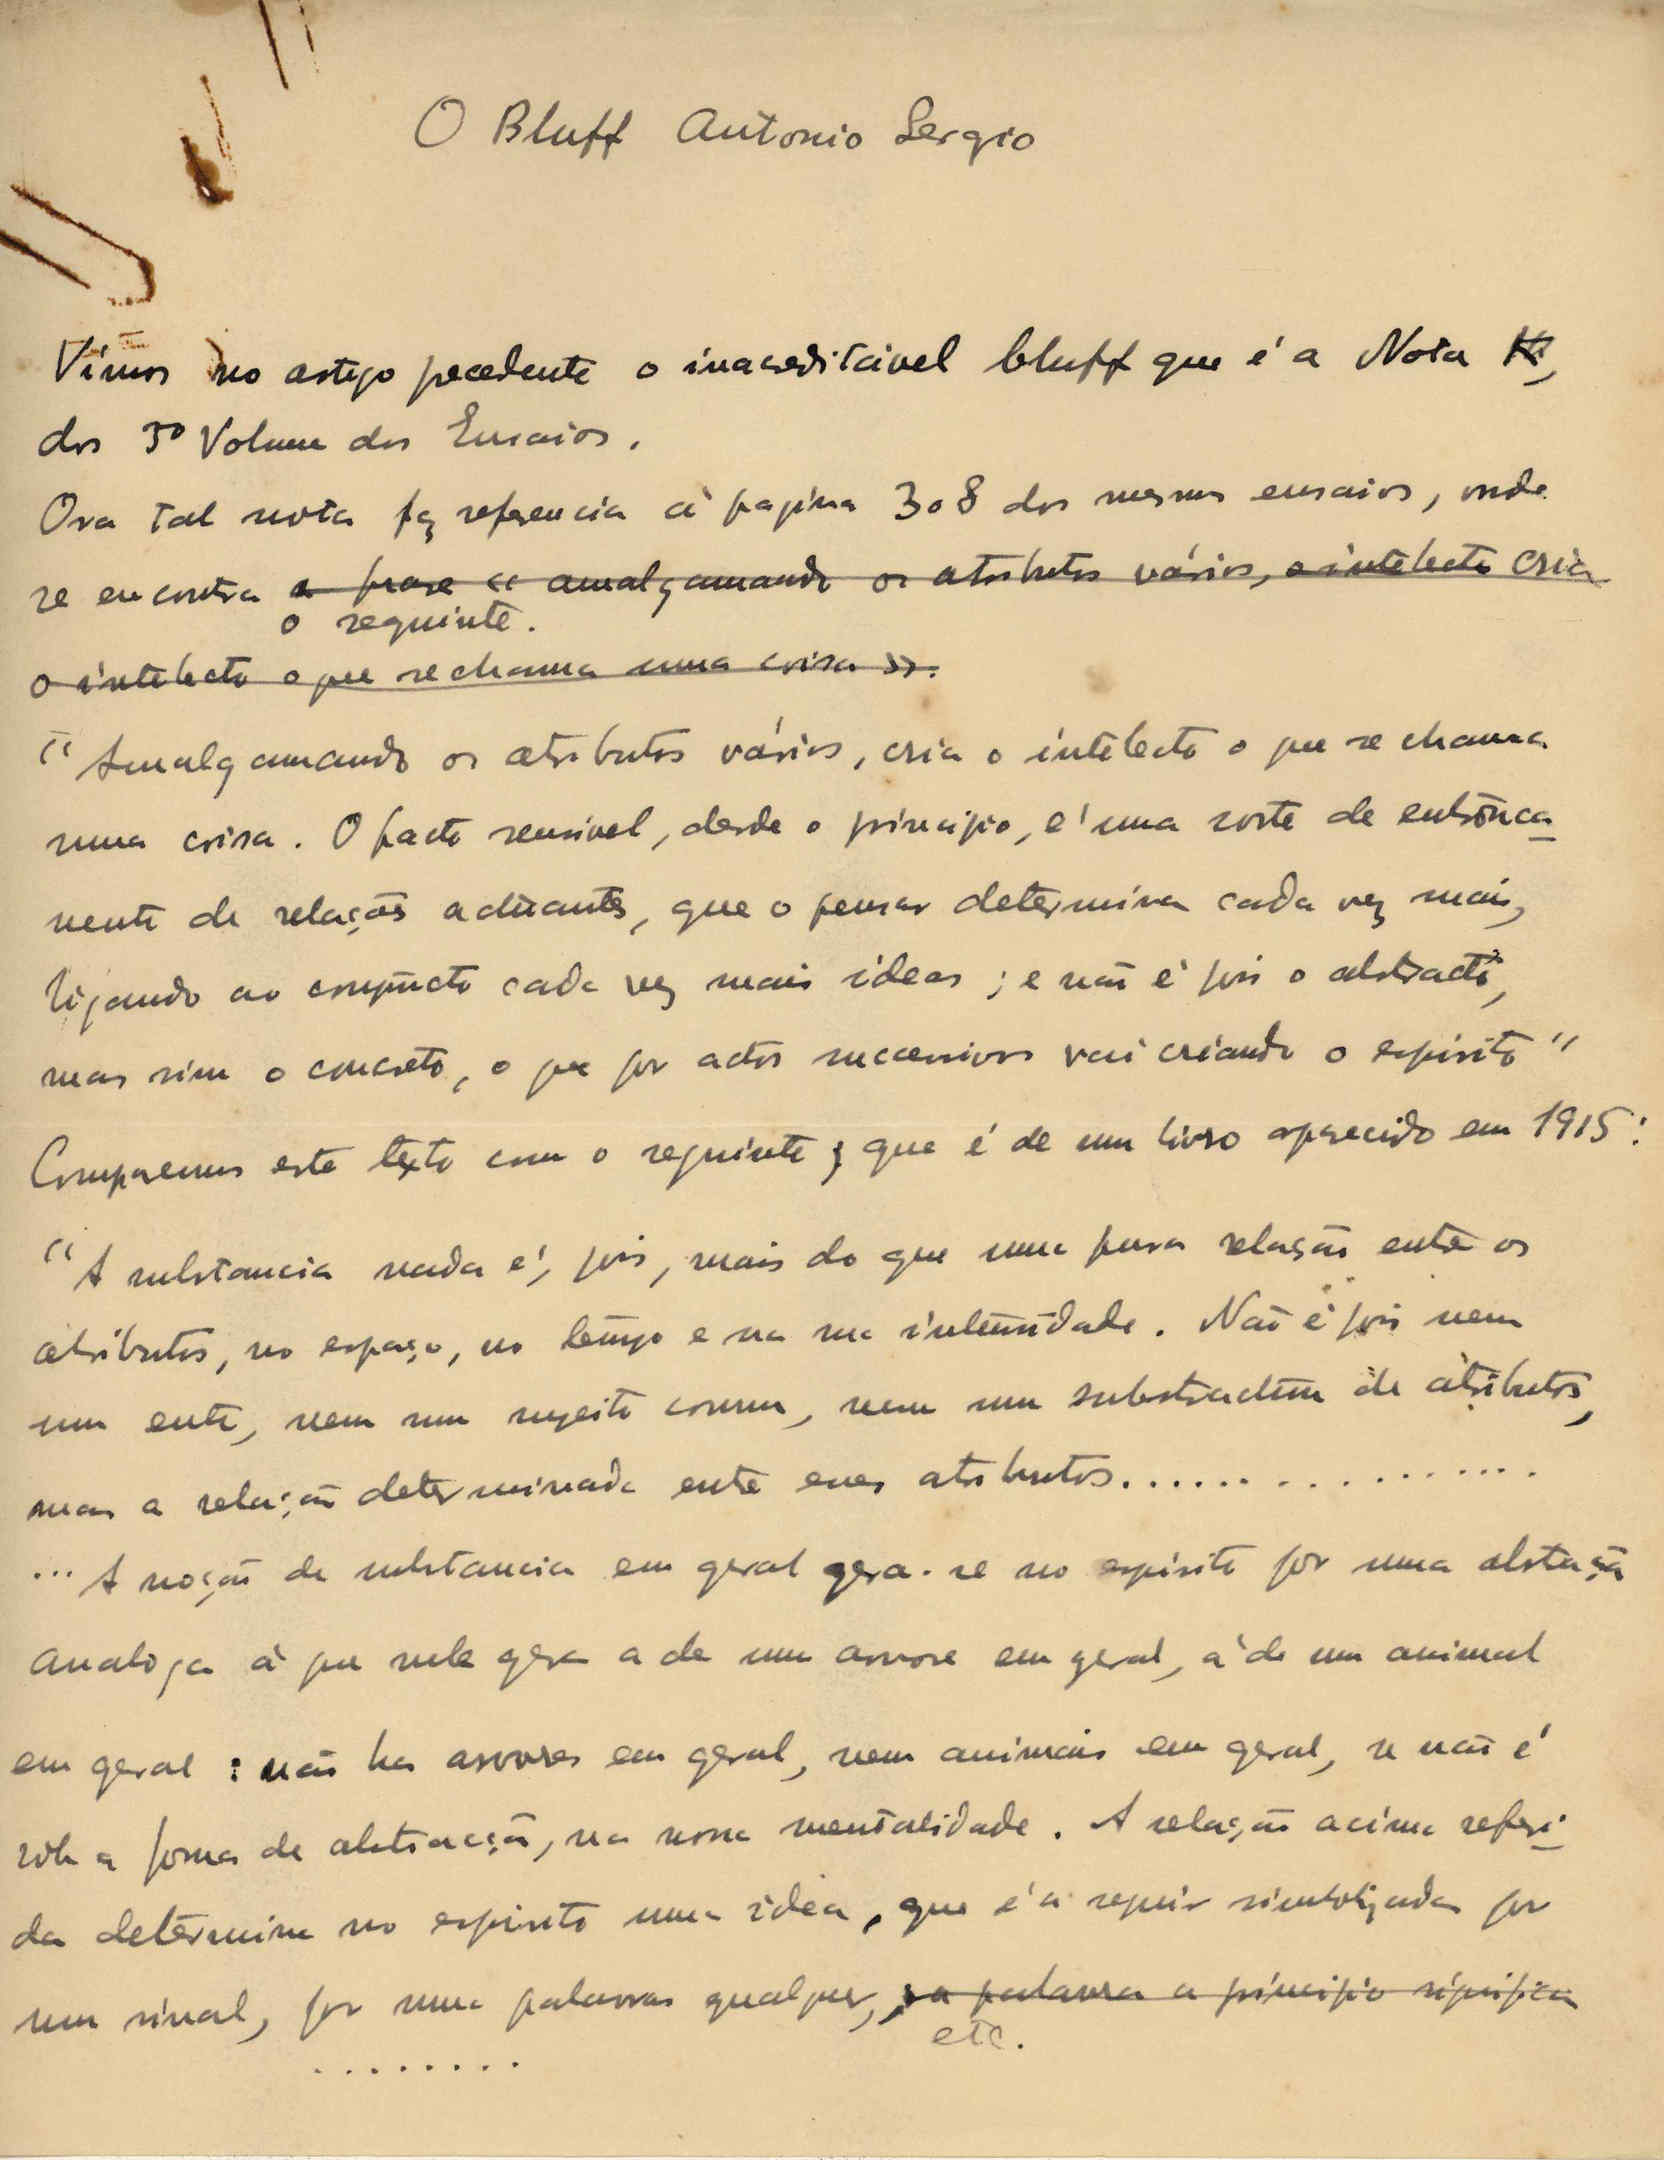 O Bluff Antonio Sergio
Vimos no artigo precedente o inacreditável bluff que é a Nota
dos 3º Volume dos Ensaios.
Ora tal nota faz referencia á pagina 308 dos mesmos ensaios, onde
se encontra a frase « amalgamando os atributos vários, o intelecto cria
o seguinte.
o intelecto o que se chama uma coisa ».
"Amalgamando os atributos vários, cria o intelecto o que se chama
uma coisa. O facto sensivel, desde o principio, e' uma sorte de entronca-
mento de relações actuantes, que o pensar determina cada vez mais,
ligando ao conjuncto cada vez mais ideas ; e não é pois o abstracto,
mas sim o concreto, o que por actos sucessivos vai criando o espirito"
Comparemos este texto com o seguinte, que é de um livro aparecido em 1915:
"A substancia nada e', pois, mais do que uma pura relação entre os
atributos, no espaço, no tempo e na sua intensidade. Não é pois nem
um ente, nem um sujeito comum, nem um substractum de atributos,
mas a relação determinada entre esses atributos................
... A noção de substancia em geral gera-se no espirito por uma abstração
analoga á que nele gera a de uma arvore em geral, á de um animal
em geral : não ha arvores em geral, nem animais em geral, se não é
sob a forma de abstracção, na nossa mentalidade. A relação acima referi-
da determina no espirito uma idea, que é a seguir simbolizada por
um sinal, por uma palavra qualquer, ; a palavra a principio significa
etc.
........